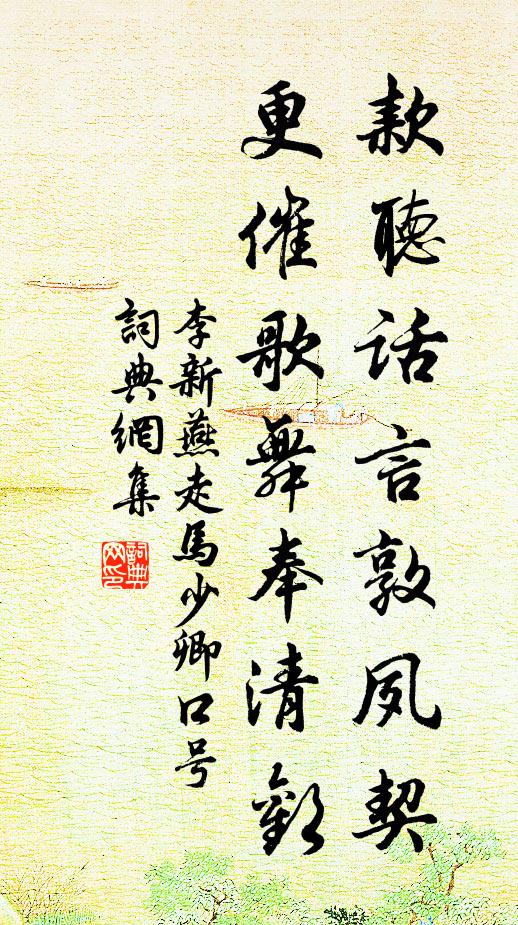 款聽话言敦夙契
更催歌舞奉清歡
李新燕走馬少卿口号
詞典網集
詞典网印